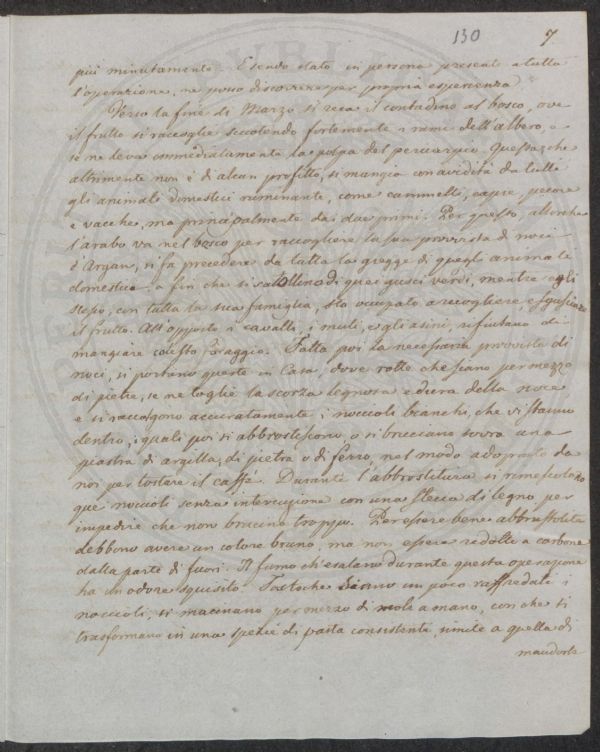 130 7
più minutamente. Essendo stato in persona presente a tutta
l'operazione, ne posso discorrere per propria esperienza.
Verso la fine di Marzo si reca il contadino al bosco, ove
il frutto si raccoglie scuotendo fortemente i rami dell'albero, e
se ne leva immediatamente la polpa del pericarpio. Questa, che
altrimente non è di alcun profitto, si mangia con avidità da tutti
gli animali domestici ruminante, come cammelli, capre, pecore
e vacche, ma principalmente dai due primi. Per questo, allorchè
l'arabo va nel bosco per raccogliere la sua provvista di noci
d'Argan, si fa precedere da tutta la gregge di quegli animali
domestici, a fin che si satollino di quei gusci verdi, mentre egli
stesso, con tutta la sua famiglia, sta occupato a raccogliere e sgusciare
il frutto. All'opposto i cavalli, i muli, e gli asini, rifiutano di
mangiare cotesto foraggio. Fatta poi la necessaria provvista di
noci, si portano queste in Casa, dove rotte che siano per mezzo
di pietre, se ne toglie la scorza legnosa e dura della noce
e si raccolgono accuratamente i noccioli bianchi, che vi stanno
dentro, i quali poi si abbrostiscono, o si bruciano sovra una
piastra di argilla, di pietra o di ferro, nel modo adoprato da
noi per tostare il caffè. Durante l'abbrostitura si rimescolano
que' noccioli senza interruzione con una stecca di legno per
impedire che non brucino troppo. Per essere bene abbrustolite
debbono avere un colore bruno, ma non essere ridotte a carbone
dalla parte di fuori. Il fumo ch'esalano durante questa operazione
ha un odore squisito. Tostochè siano un poco raffredati i
noccioli, si macinano per mezzo di mole a mano, con che si
trasformano in una spezie di pasta consistente, simile a quella di
mandorle